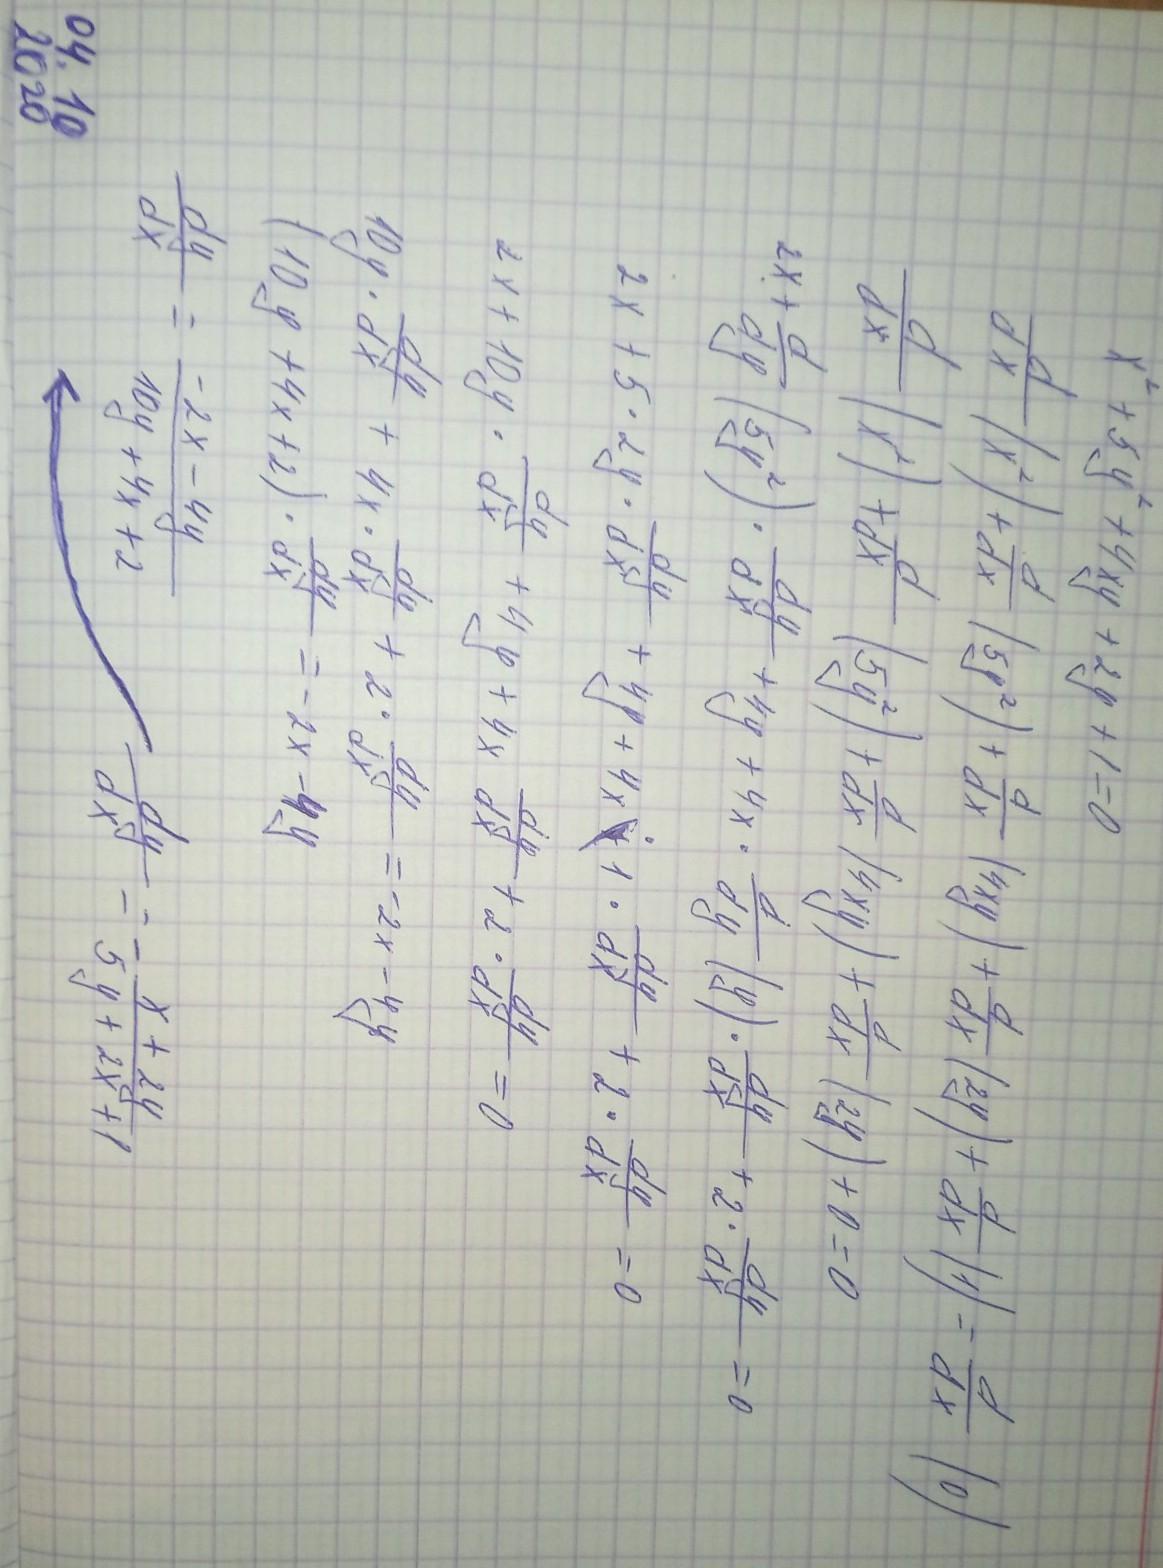 x² + 5y² + 4xy + 2y + 1 = 0
d/dx (x²) + d/dx (5y²) + d/dx (4xy) + d/dx (2y) + d/dx (1) = d/dx (0)
d/dx (x²) + d/dx (5y²) + d/dx (4xy) + d/dx (2y) + 0 = 0
2x + d/dy (5y²) · dy/dx + 4y + 4x · d/dy (y) · dy/dx + 2 · dy/dx = 0
2x + 5 · 2y · dy/dx + 4y + 4x · 1 · dy/dx + 2 · dy/dx = 0
2x + 10y · dy/dx + 4y + 4x dy/dx + 2 · dy/dx = 0
10y · dy/dx + 4x · dy/dx + 2 · dy/dx = -2x - 4y
(10y + 4x + 2) · dy/dx = -2x - 4y
dy/dx = (-2x - 4y)/(10y + 4x + 2)
dy/dx = - (x + 2y)/(5y + 2x + 1)
04.10
2020